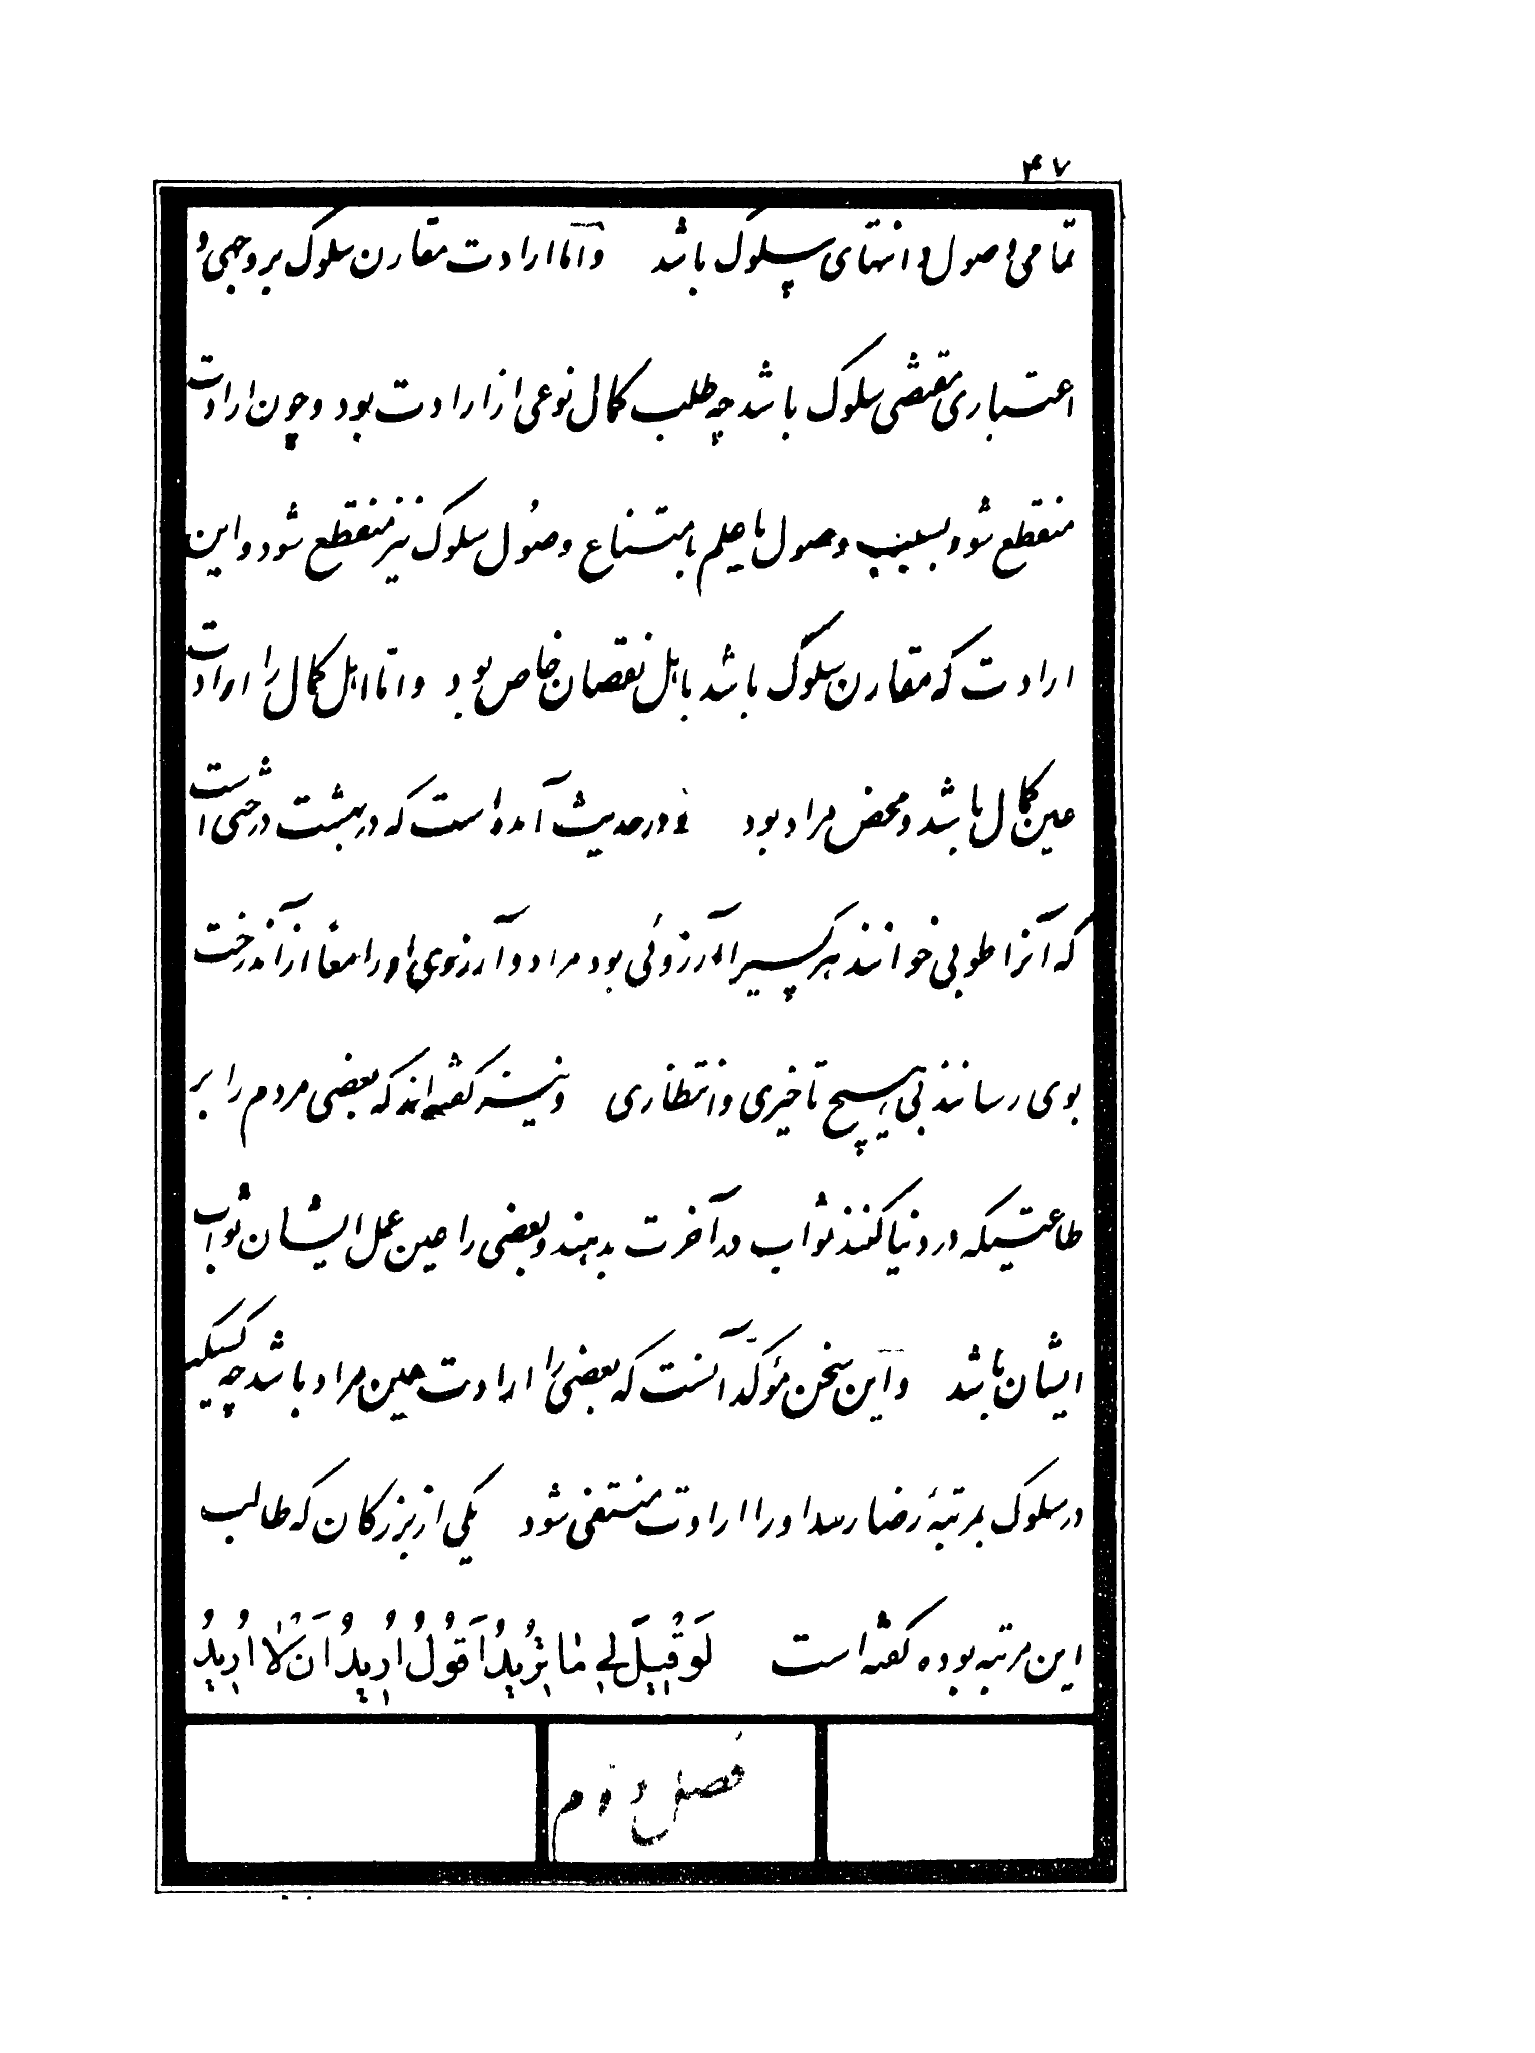 ۴۷
تمامی وصول و انتهای سلوک باشد و امّا ارادت مقارن سلوک بر وجهی و
اعتباری مقتضی سلوک باشد چه طلب کمال نوعی از ارادت بود و چون ارادت
منقطع شود بسبب وصول یا علم بامتناع وصول سلوک نیز منقطع شود و این
ارادت که مقارن سلوک باشد باهل نقصان خاص بود و امّا اهل کمال را ارادت
عین کمال باشد و محض مراد بود و در حدیث آمده است که در بهشت درختی است
که آنرا طوبی خوانند هر کسیرا آرزوئی بود مراد و آرزوی او را معاً از آندرخت
بوی رسانند بی هیچ تاخیری و انتظاری و نیز گفته‌اند که بعضی مردم را بر
طاعتیکه در دنیا کنند ثواب در آخرت بدهند و بعضی را عین عمل ایشان ثواب
ایشان باشد و این سخن مؤکّد آنست که بعضی را ارادت عین مراد باشد چه کسیکه
در سلوک بمرتبهٔ رضا رسد او را ارادت منتفی شود یکی از بزرگان که طالب
این مرتبه بوده گفته است لَوْ قُیِلَ لِی مٰا تُرِیدُ اَقُولُ اُرِیدُ اَنْ لاٰ اُرِیدُ
فصل دوّم